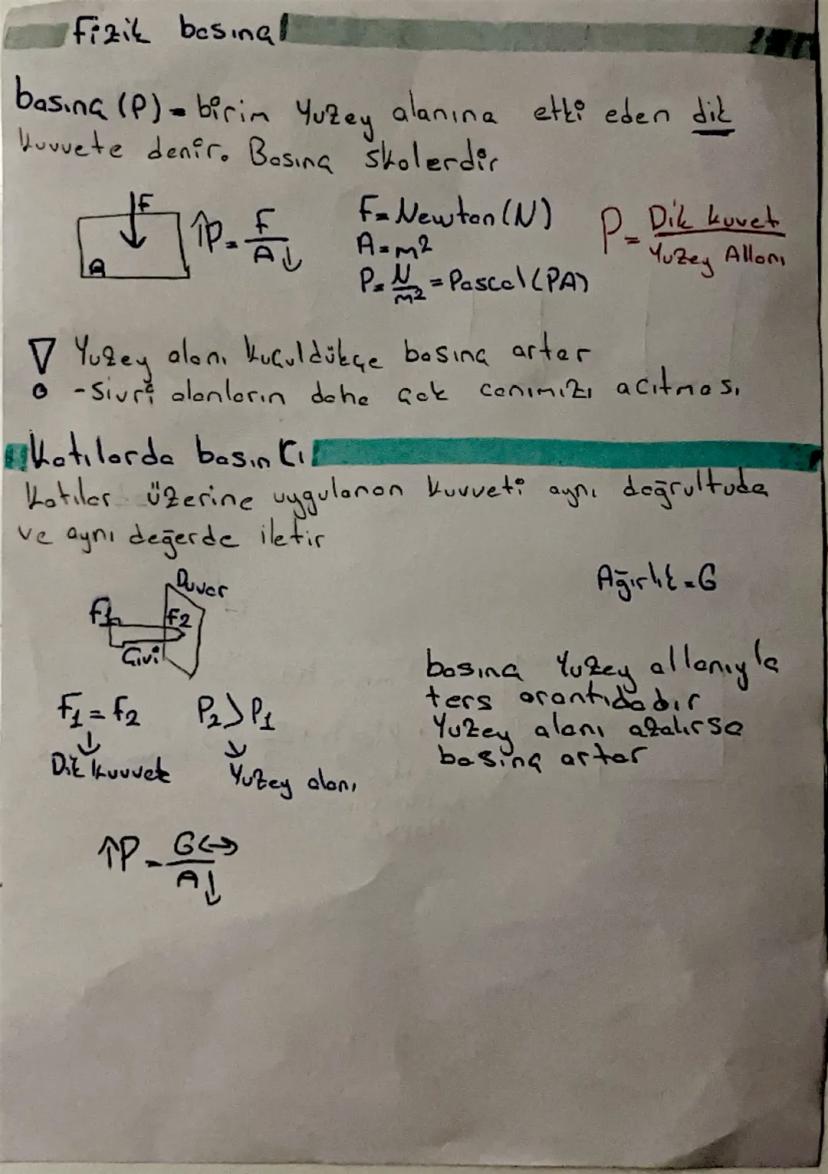 Fizik basınç
basınç (P) = birim yuzey alanına etki eden dik
kuvvete denir. Basınç skalerdir
F
A
↑P = F/A↓
F = Newton (N)
A = m²
P = N/m² = Pascal (PA)
P = Dik kuvet/Yuzey Allanı
! Yuzey alanı kuçuldükçe basınç artar
- Sivri alanların daha çok canımızı acıtması
Katılarda basıncı
Katılar üzerine uygulanan kuvveti aynı doğrultuda
ve aynı değerde iletir
Duvar
F1
F2
Çivi
Ağırlık = G
F1 = F2 P2 > P1
↓ ↓
Dik kuvvet Yuzey alanı
basınç Yuzey allanıyla
ters orantıdadır
Yuzey alanı azalırsa
basınç artar
↑P = G↔/A↓